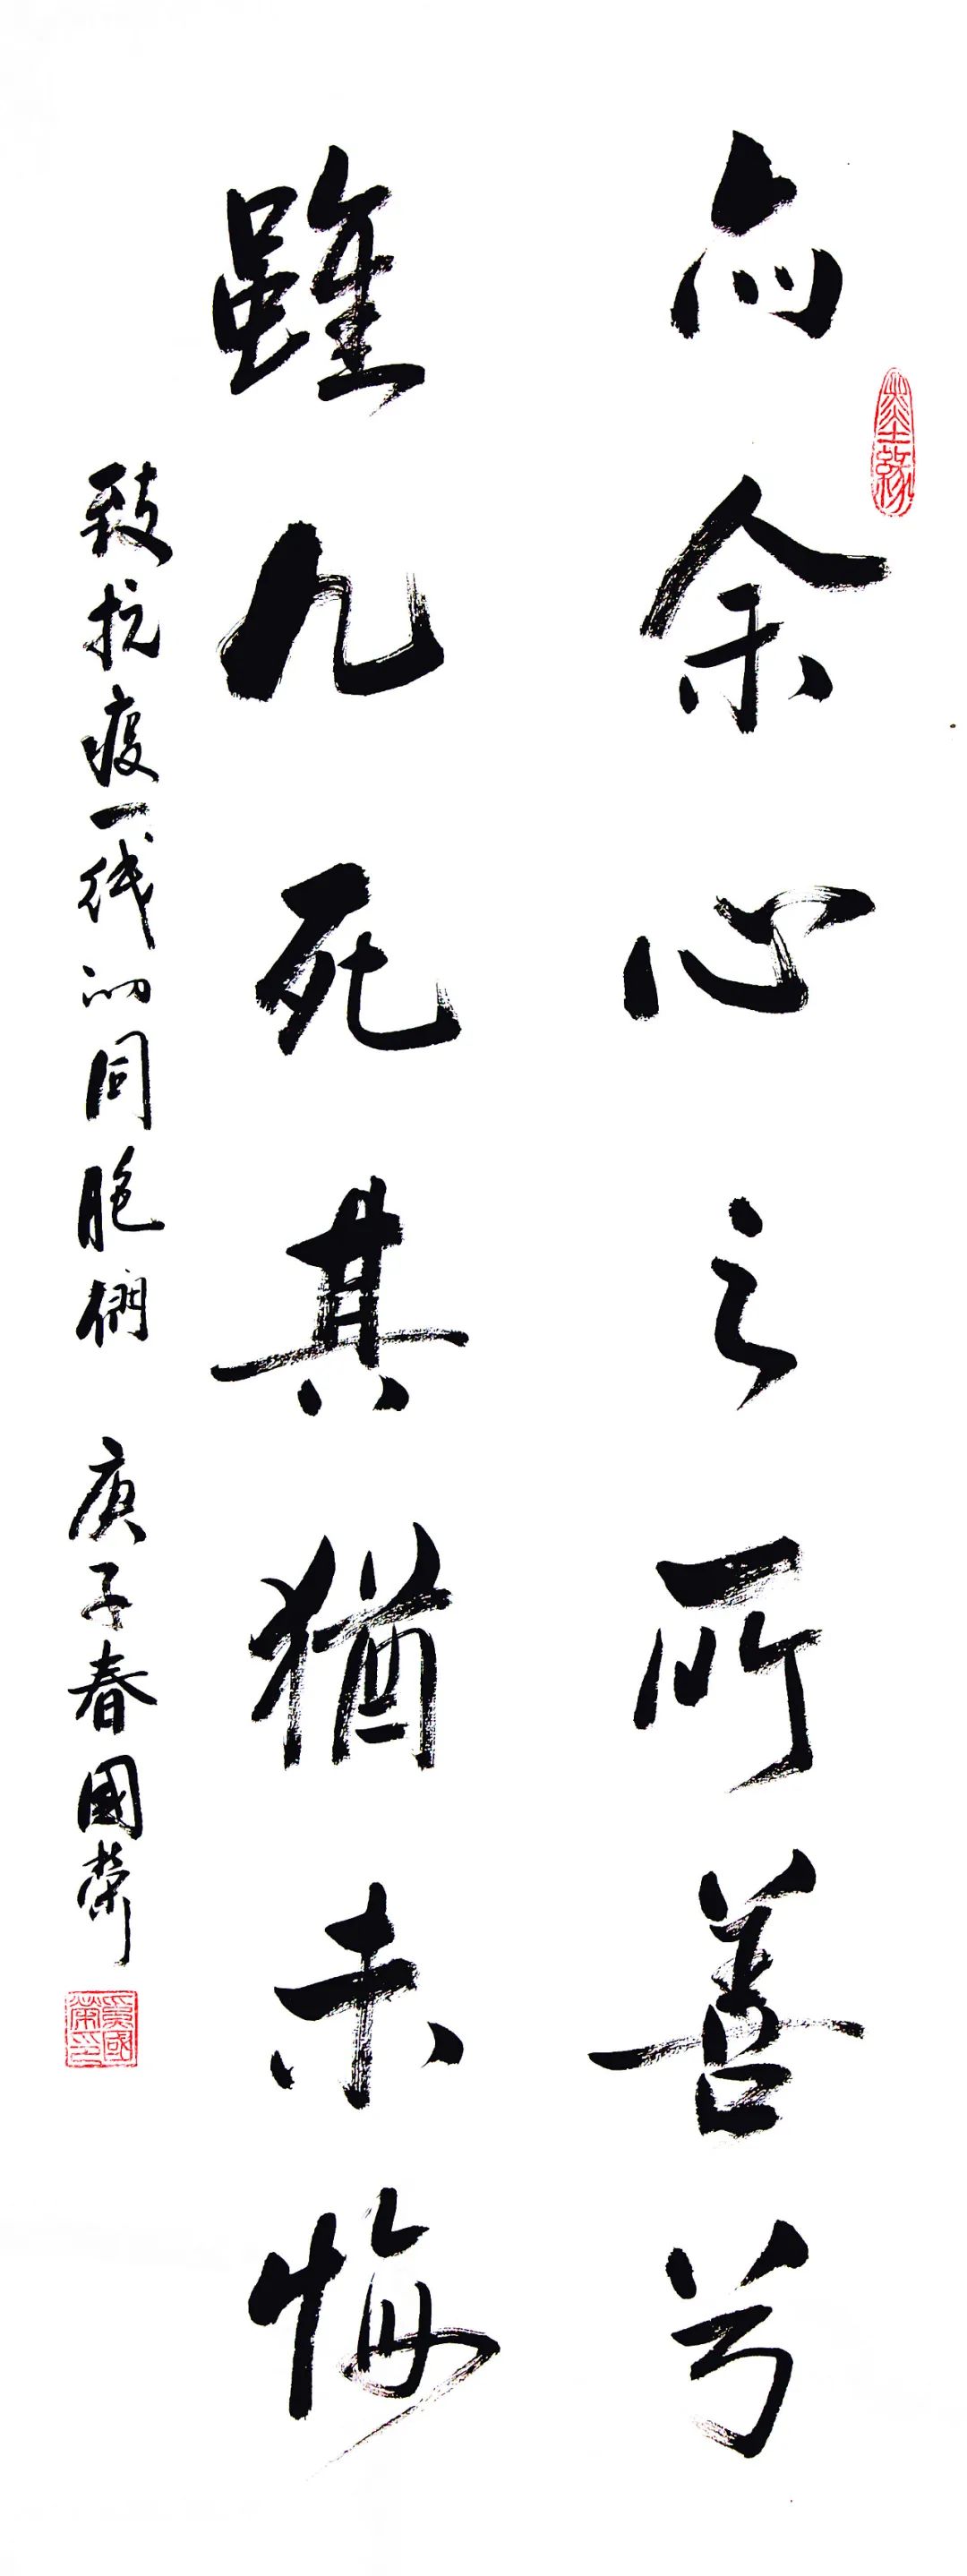 亦余心之所善兮
雖九死其猶未悔
致抗疫一线的同胞們 庚子春國榮
墨緣